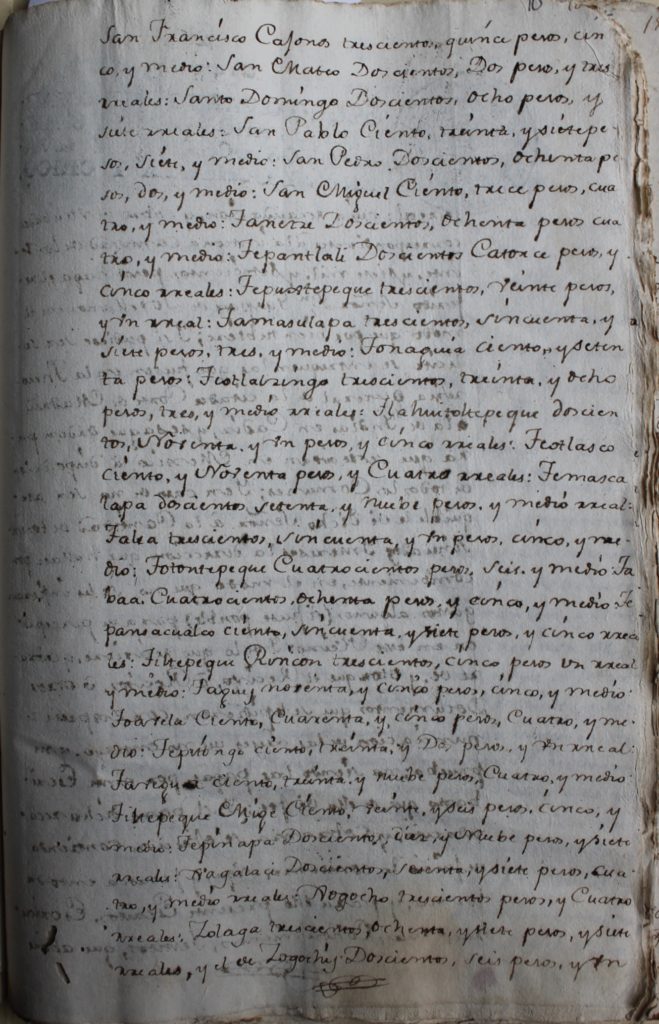 San Francisco Casonos trescientos, quinse pesos, cin
co, y medio: San Mateo Doscientos, Dos pesos, y tres
rreales: Santo Domingo Doscientos, ocho pesos, y
siete rreales: San Pablo Ciento, treinta, y siete pe
sos, siete, y medio: San Pedro Doscientos, ochenta pe
sos, dos, y medio: San Miguel Ciento, trece pesos, cua
tro, y medio: Tanetze Doscientos, ochenta pesos cua
tro, y medio: Tepantlali Doscientos Catorce pesos, y
cinco rreales: Tepustepeque trescientos, Veinte pesos,
y un rreal: Tamasulapa trescientos, sincuenta, y
siete pesos, tres, y medio: Tonaguia ciento, y seten
ta pesos: Teotlalzingo trescientos, treinta, y ocho
pesos, tres, y medio rreales: Tlahuitoltepeque doscien
tos, Noventa, y un pesos, y cinco rreales: Teotlasco
ciento, y Noventa pesos, y Cuatro rreales: Temasca
lapa doscientos setenta, y Nuebe pesos, y medio rreal:
Talea trescientos, sincuenta, y un pesos, cinco, y me
dio: Totontepeque Cuatrocientos pesos, seis, y medio: Ta
baa Cuatrocientos, ochenta pesos, y cinco, y medio: Te
pansacualco ciento, sincuenta, y siete pesos, y cinco rrea
les: Tiltepeque Rincon trescientos, cinco pesos un rreal
y medio: Taguij noventa, y cinco pesos, cinco, y medio:
Toavela Ciento, Cuarenta, y cinco pesos, Cuatro, y me
dio: Tepitongo ciento, treinta, y Dos pesos, y un rreal:
ciento, treinta, y nuebe pesos, Cuatro, y medio:
Tiltepeque Mige Ciento, Veinte, y seis pesos, cinco, y
medio: Tepinapa Doscientos, diez, y Nuebe pesos, y siete
rreales: Yagalaci Doscientos, sesenta, y siete pesos, cua
tro, y medio rreales: Yogocho, trescientos pesos, y Cuatro
rreales: Zolaga trescientos, ochenta, y siete pesos, y siete
rreales, y el de Zogochij Doscientos, seis pesos, y un